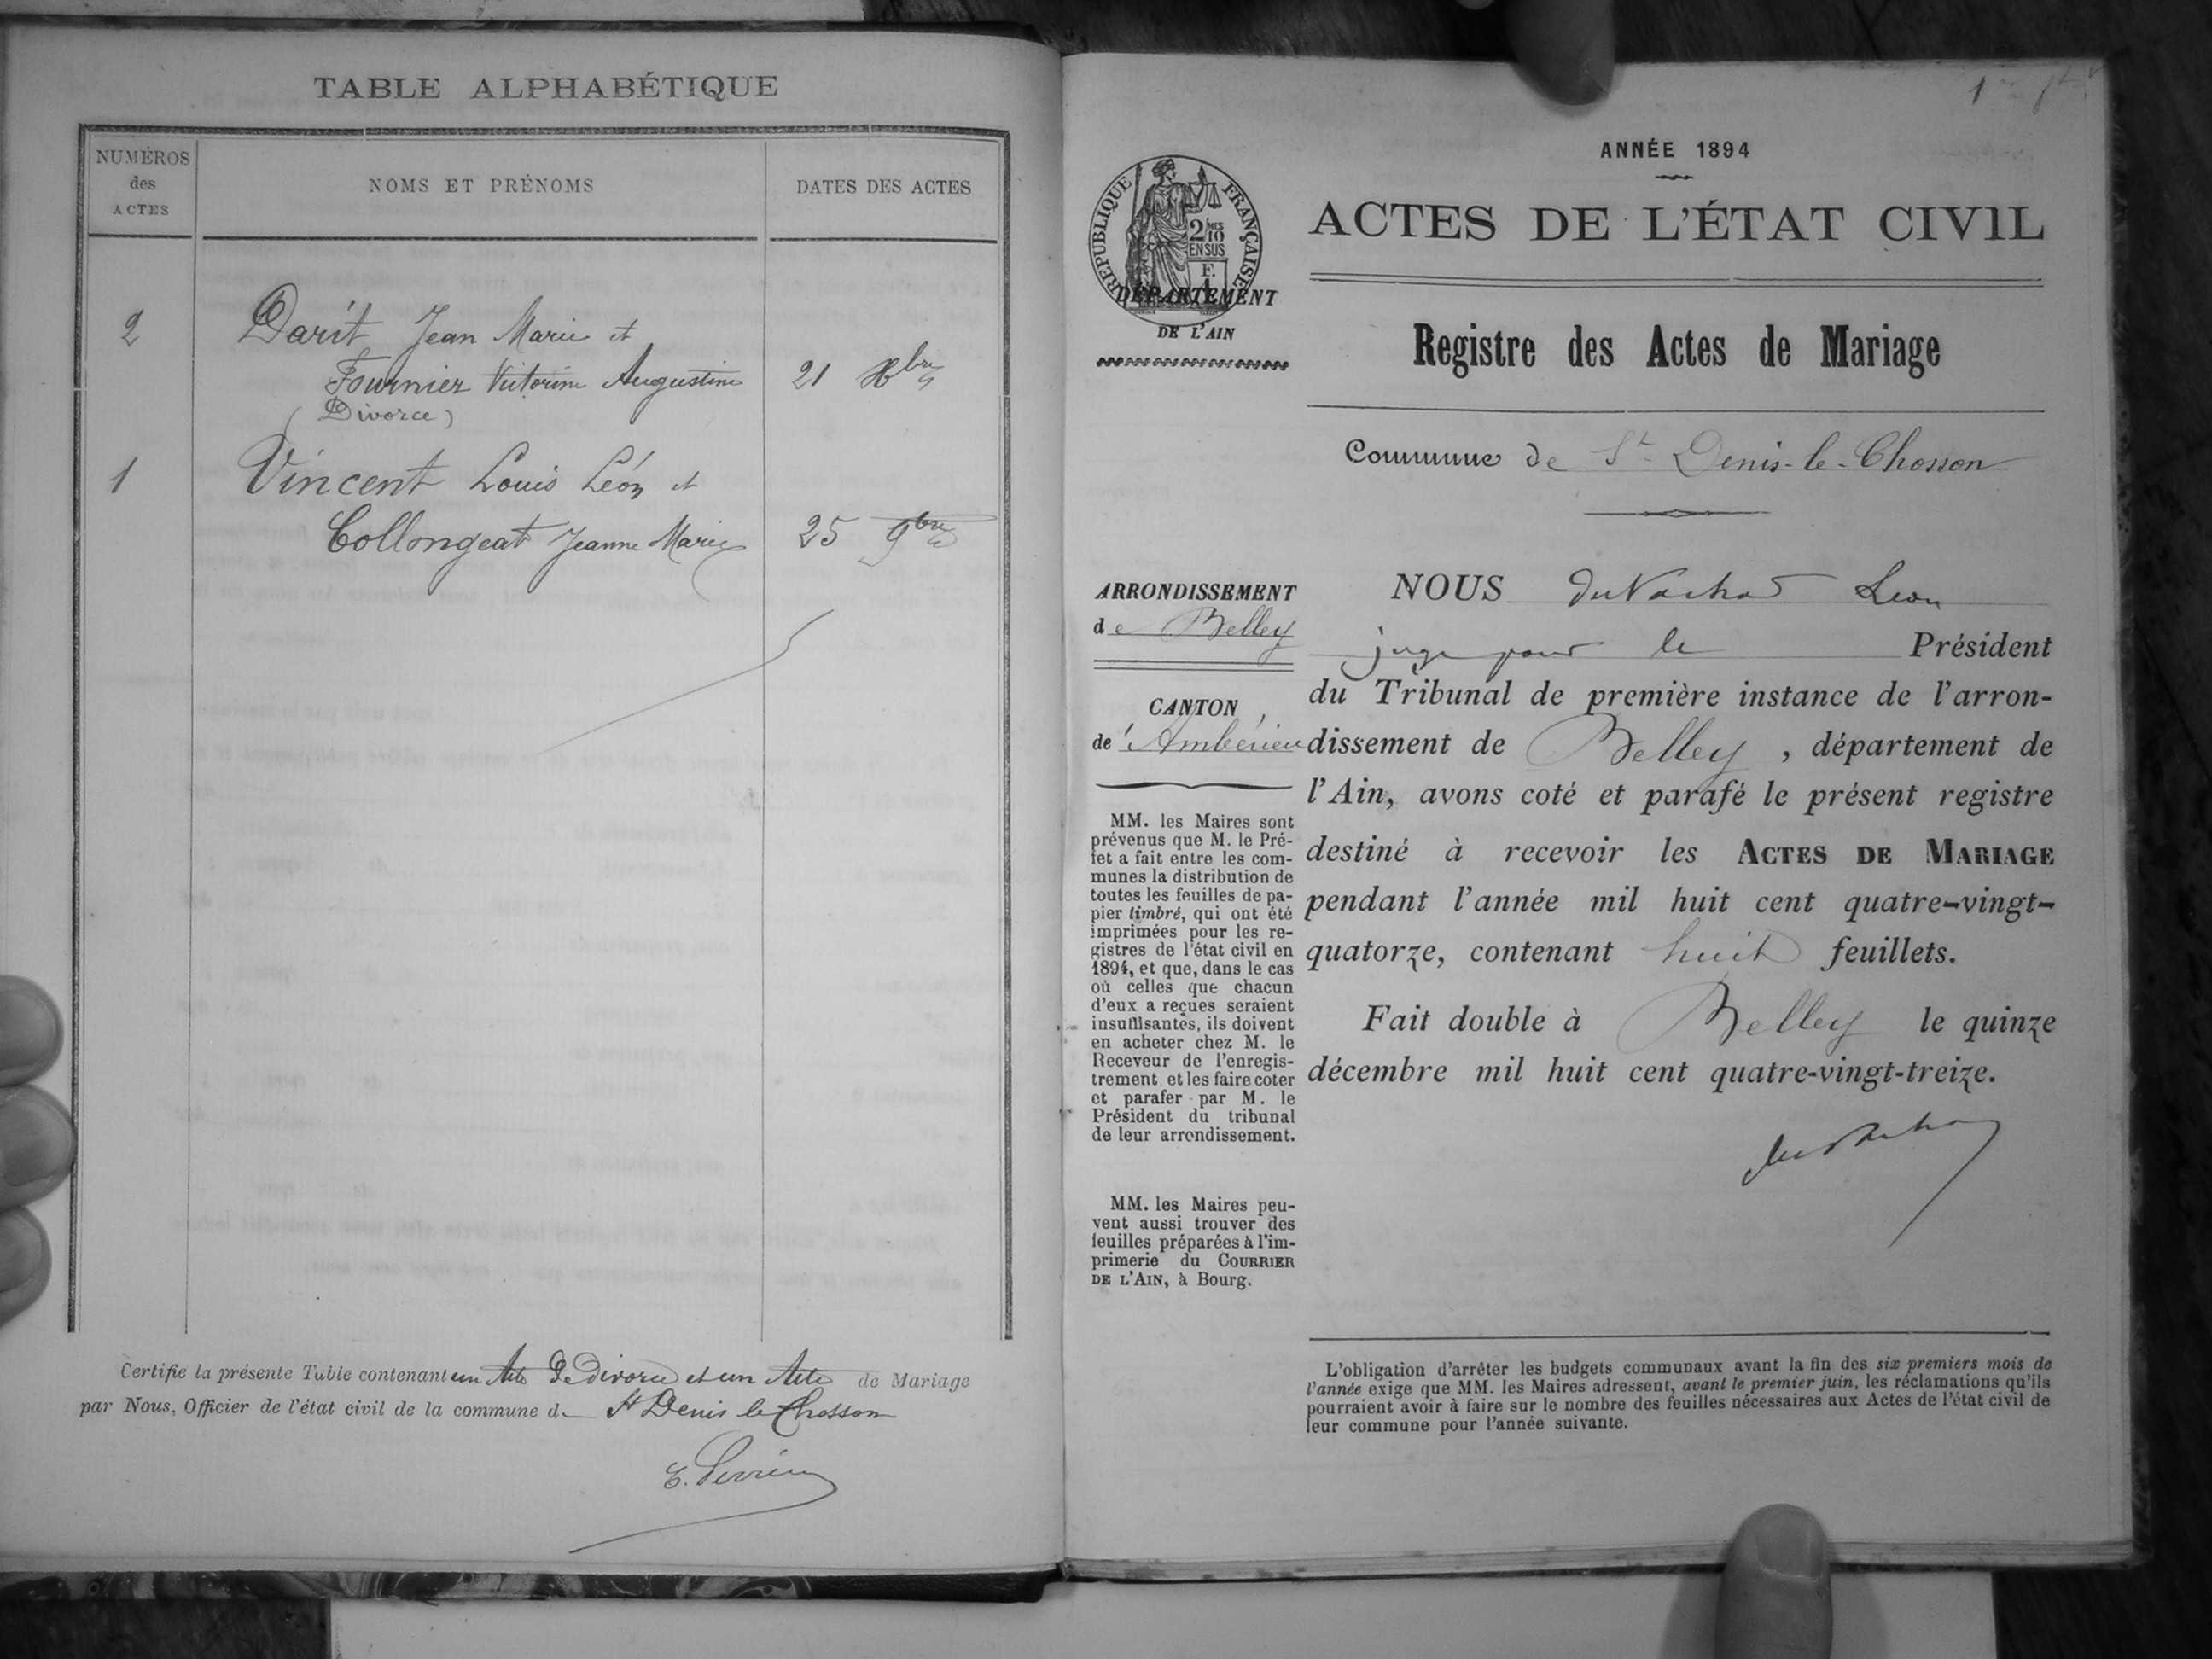 TABLE ALPHABÉTIQUE
NUMÉROS
des
ACTES
NOMS ET PRÉNOMS
DATES DES ACTES
2 Darit Jean Marie et
Fournier Victorine Augustine 21 Xbre
(Divorce)
1 Vincent Louis Léon et
Collongeat Jeanne Marie 25 9bre
Certifie la présente Table contenant un Acte De divorce et un Acte de Mariage
par Nous, Officier de l'état civil de la commune de St Denis le Chosson
1
ANNÉE 1894
RÉPUBLIQUE FRANÇAISE
2 MES
10
EN SUS
F.
DÉPARTEMENT
DE L'AIN
ACTES DE L'ÉTAT CIVIL
Registre des Actes de Mariage
Commune de St Denis-le-Chosson
ARRONDISSEMENT
de Belley
CANTON
de Ambérieu
MM. les Maires sont
prévenus que M. le Pré-
fet a fait entre les com-
munes la distribution de
toutes les feuilles de pa-
pier timbré, qui ont été
imprimées pour les re-
gistres de l'état civil en
1894, et que, dans le cas
où celles que chacun
d'eux a reçues seraient
insuffisantes, ils doivent
en acheter chez M. le
Receveur de l'enregis-
trement et les faire coter
et parafer par M. le
Président du tribunal
de leur arrondissement.
MM. les Maires peu-
vent aussi trouver des
feuilles préparées à l'im-
primerie du COURRIER
DE L'AIN, à Bourg.
NOUS Léon
juge pour le Président
du Tribunal de première instance de l'arron-
dissement de Belley, département de
l'Ain, avons coté et parafé le présent registre
destiné à recevoir les ACTES DE MARIAGE
pendant l'année mil huit cent quatre-vingt-
quatorze, contenant huit feuillets.
Fait double à Belley le quinze
décembre mil huit cent quatre-vingt-treize.
L'obligation d'arrêter les budgets communaux avant la fin des six premiers mois de
l'année exige que MM. les Maires adressent, avant le premier juin, les réclamations qu'ils
pourraient avoir à faire sur le nombre des feuilles nécessaires aux Actes de l'état civil de
leur commune pour l'année suivante.